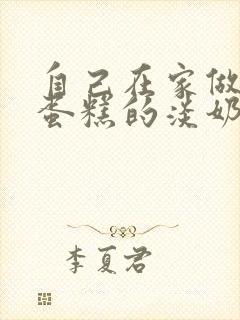 自己在家做
蛋糕的淡奶
李夏君